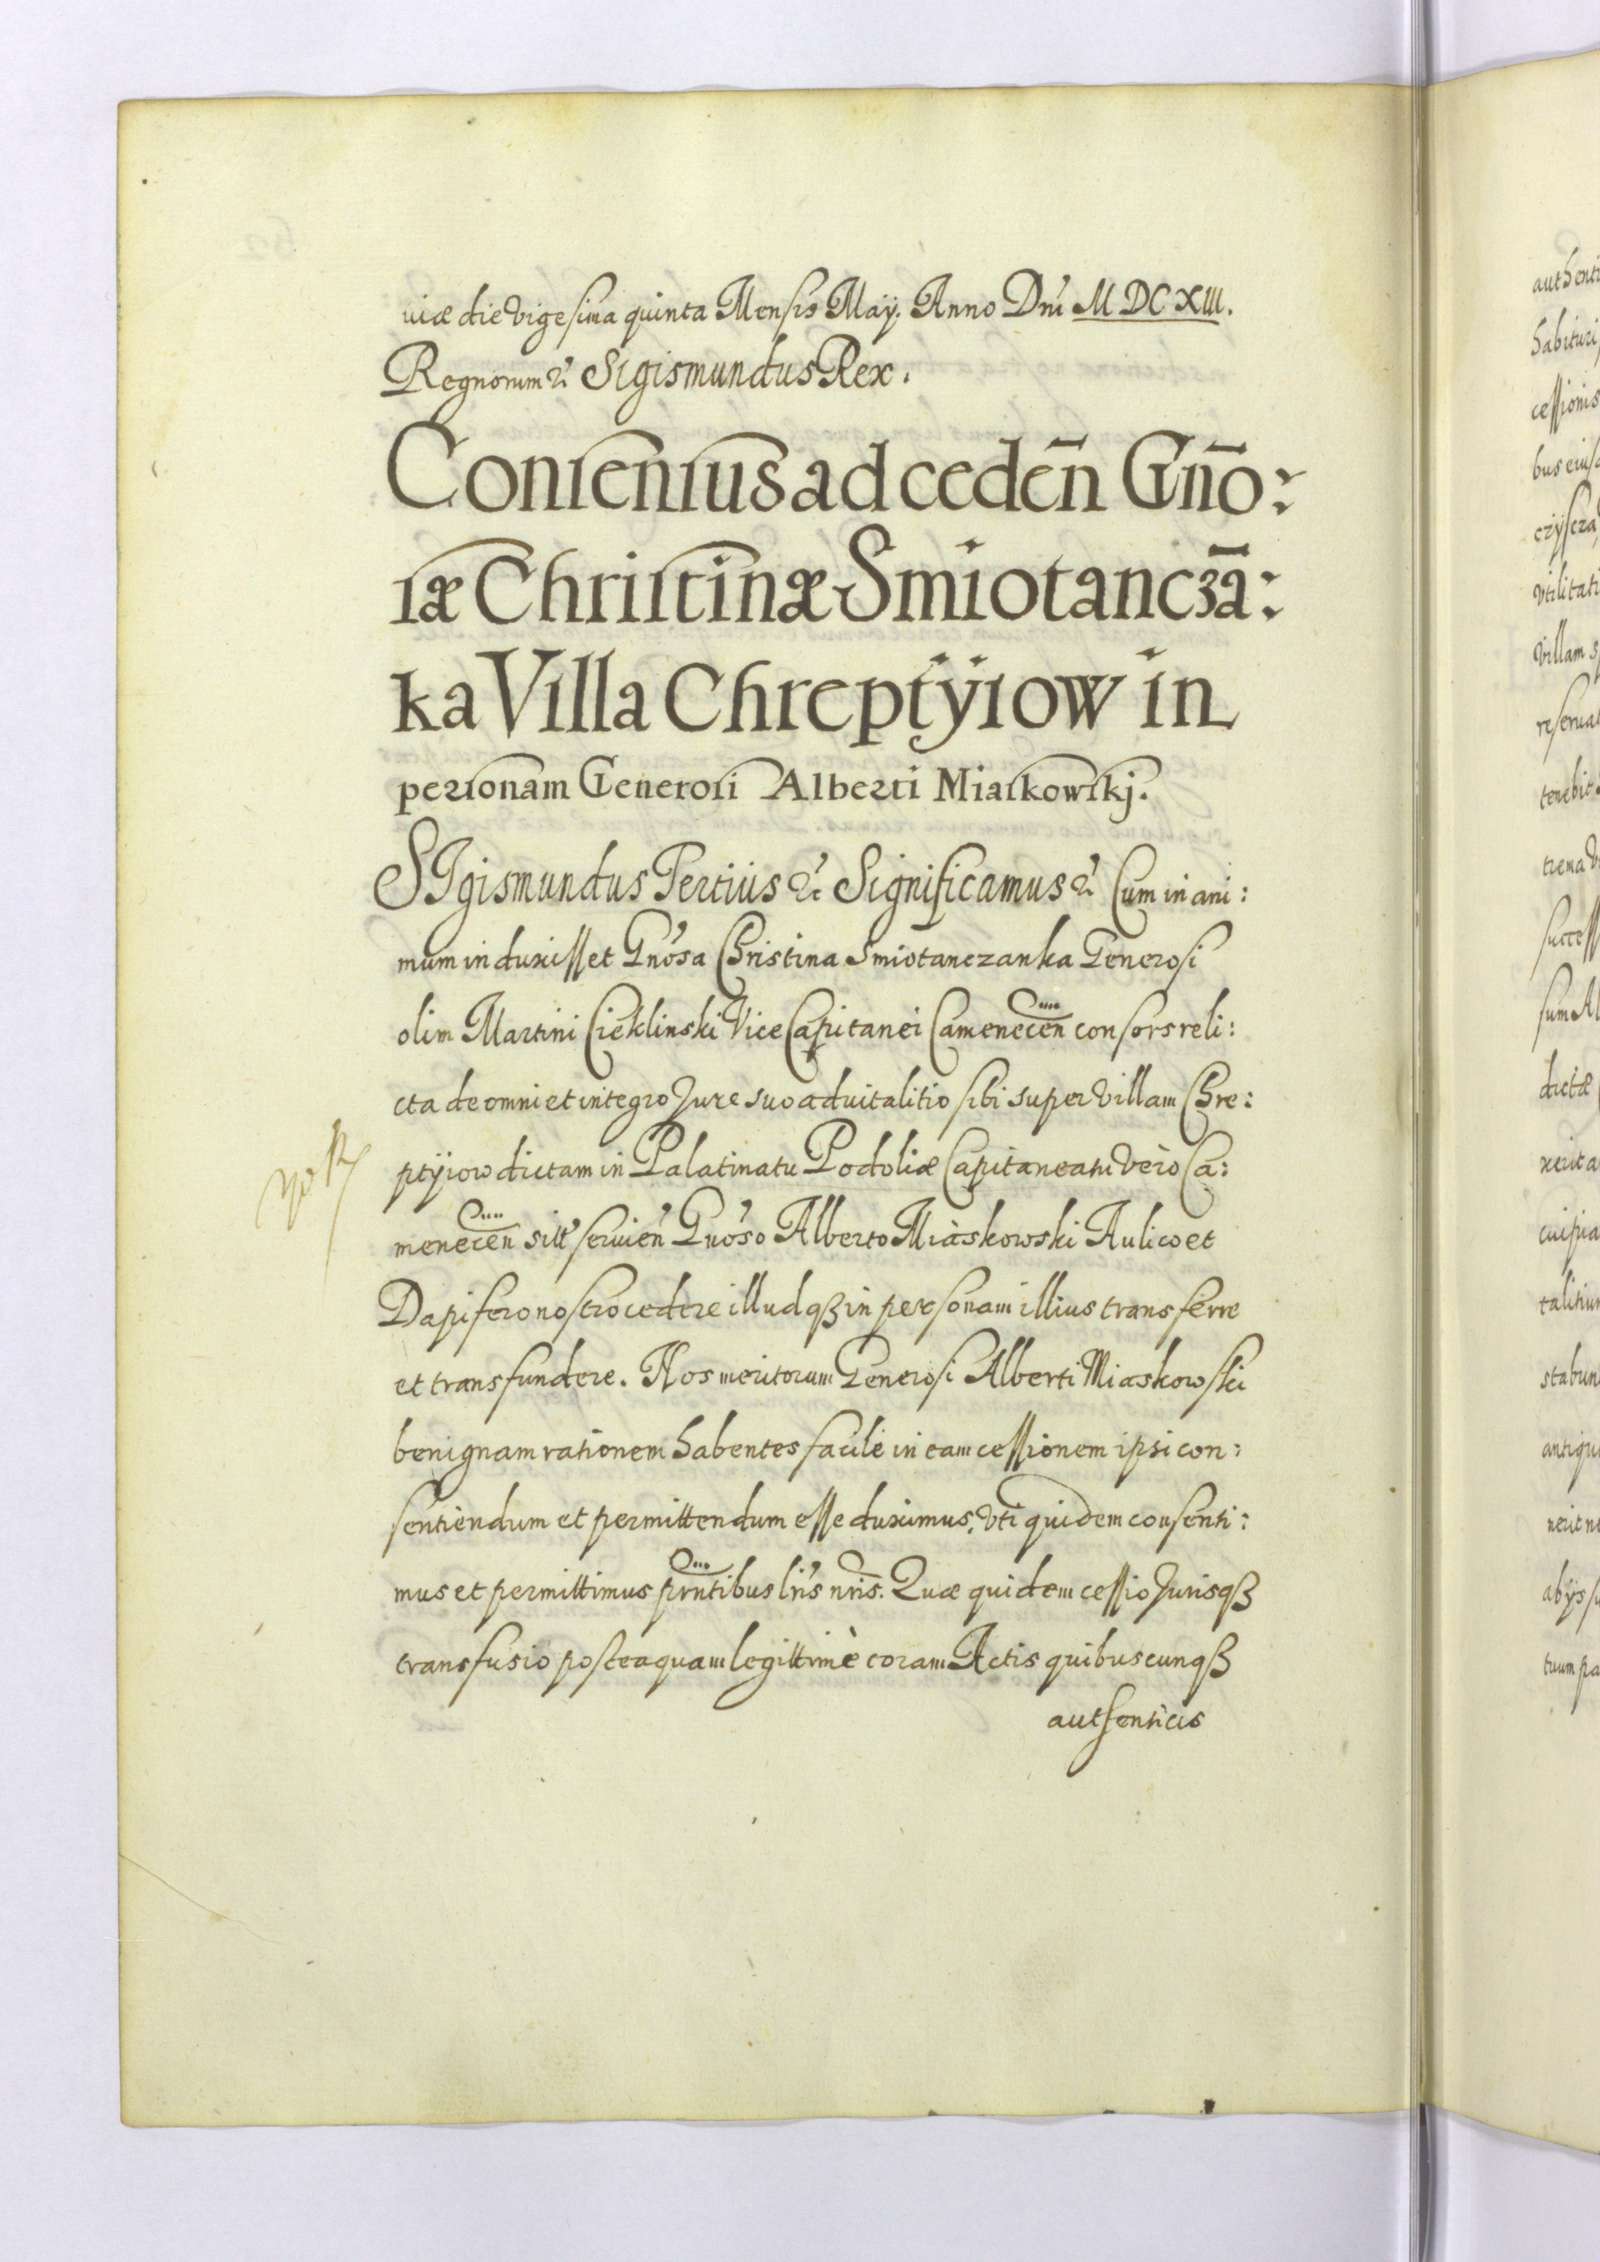 uiæ die vigesima quinta Mensis Maÿ. Anno Dni M DC XIII.
Regnorum &c Sigismundus Rex.
Consensus ad ceden̄ Gn̄o:
sæ Christinæ Smiotanczā:
ka Villa Chreptÿiow in
personam Generosi Alberti Miaskowskj.
SIgismundus Tertius &c Significamus &c Cum in ani:
mum induxisset Gnosa Christina Smiotanczanka Generosi
olim Martini Cieklinski Vice Capitanei Camenecen̄ consors reli:
cta de omni et integro Jure suo aduitalitio sibi super villam Chre:
ptÿiow dictam in Palatinatu Podoliæ Capitaneatu verò Ca:
menecen̄ sitt seruien Gnoso Alberto Miaskowski Aulico et
Dapifero nostro cedere illudqȝ in personam illius transferre
et transfundere. Nos meritorum Generosi Alberti Miaskowski
benignam rationem habentes facilè in eam cessionem ipsi con:
sentiendum et permittendum esse duximus, vti quidem consenti:
mus et permittimus prn̄tibus lris nris. Quæ quidem cessio Jurisqȝ
transfusio posteaquam legittimè coram Actis quibuscunqȝ
authenticis
authenti
habituri
cessionis
bus eius
vtilitati
villam
reserua
tenebit
trema
success
sum Al
dictæ
xerit a
cuipia
talitium
stabun
antiqu
nerit n
abÿs su
tuum pa